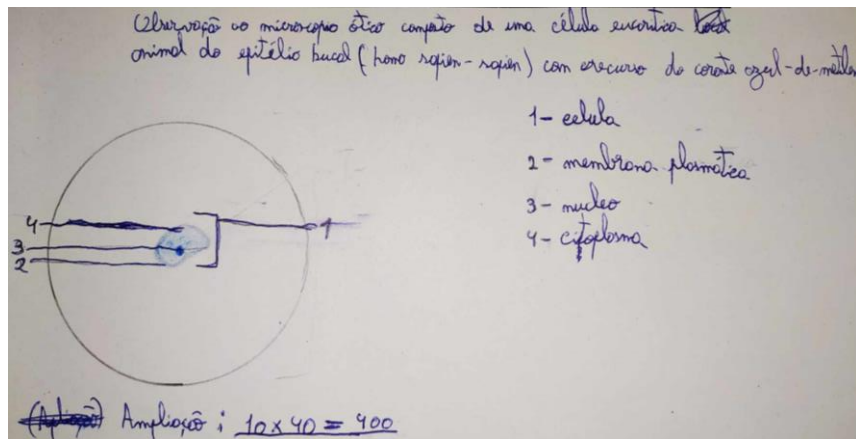 Observação ao microscopio ótico composto de uma célula eucariótica
animal do epitélio bucal (homo sapien-sapien) com orecurso do corante azul-de-metileno
1- celula
2- membrana plasmática
3- nucleo
4- citoplasma
4
3
2
1
Ampliação: 10x40 = 400